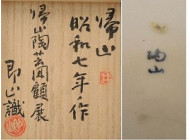 帰山
昭和七年作
帰山陶芸回顧展
即山識
帰山